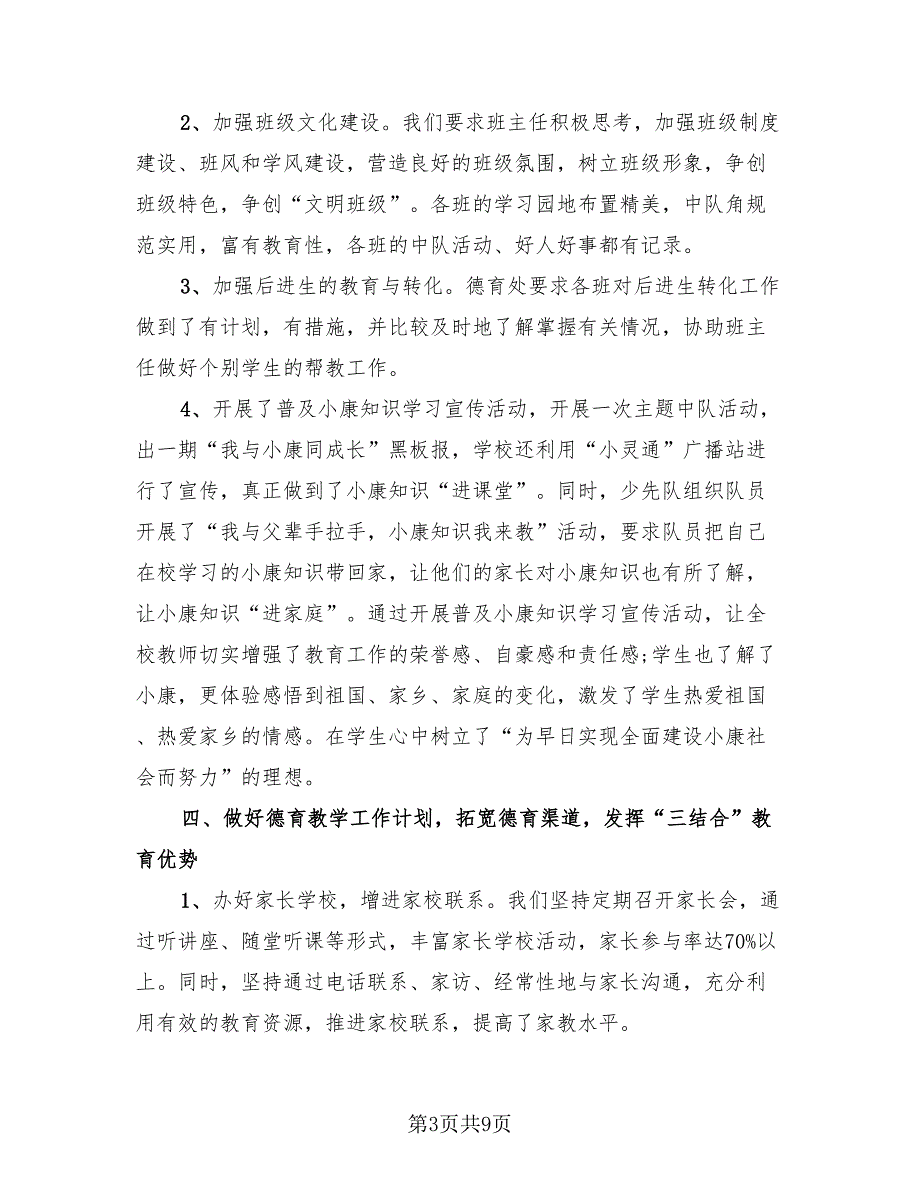 2、加强班级文化建设。我们要求班主任积极思考，加强班级制度
建设、班风和学风建设，营造良好的班级氛围，树立班级形象，争创
班级特色，争创“文明班级”。各班的学习园地布置精美，中队角规
范实用，富有教育性，各班的中队活动、好人好事都有记录。
3、加强后进生的教育与转化。德育处要求各班对后进生转化工作
做到了有计划，有措施，并比较及时地了解掌握有关情况，协助班主
任做好个别学生的帮教工作。
4、开展了普及小康知识学习宣传活动，开展一次主题中队活动，
出一期“我与小康同成长”黑板报，学校还利用“小灵通”广播站进
行了宣传，真正做到了小康知识“进课堂”。同时，少先队组织队员
开展了“我与父辈手拉手，小康知识我来教”活动，要求队员把自己
在校学习的小康知识带回家，让他们的家长对小康知识也有所了解，
让小康知识“进家庭”。通过开展普及小康知识学习宣传活动，让全
校教师切实增强了教育工作的荣誉感、自豪感和责任感;学生也了解了
小康，更体验感悟到祖国、家乡、家庭的变化，激发了学生热爱祖国
、热爱家乡的情感。在学生心中树立了“为早日实现全面建设小康社
会而努力”的理想。
四、做好德育教学工作计划，拓宽德育渠道，发挥“三结合”教
育优势
1、办好家长学校，增进家校联系。我们坚持定期召开家长会，通
过听讲座、随堂听课等形式，丰富家长学校活动，家长参与率达70%以
上。同时，坚持通过电话联系、家访、经常性地与家长沟通，充分利
用有效的教育资源，推进家校联系，提高了家教水平。
第3页共9页